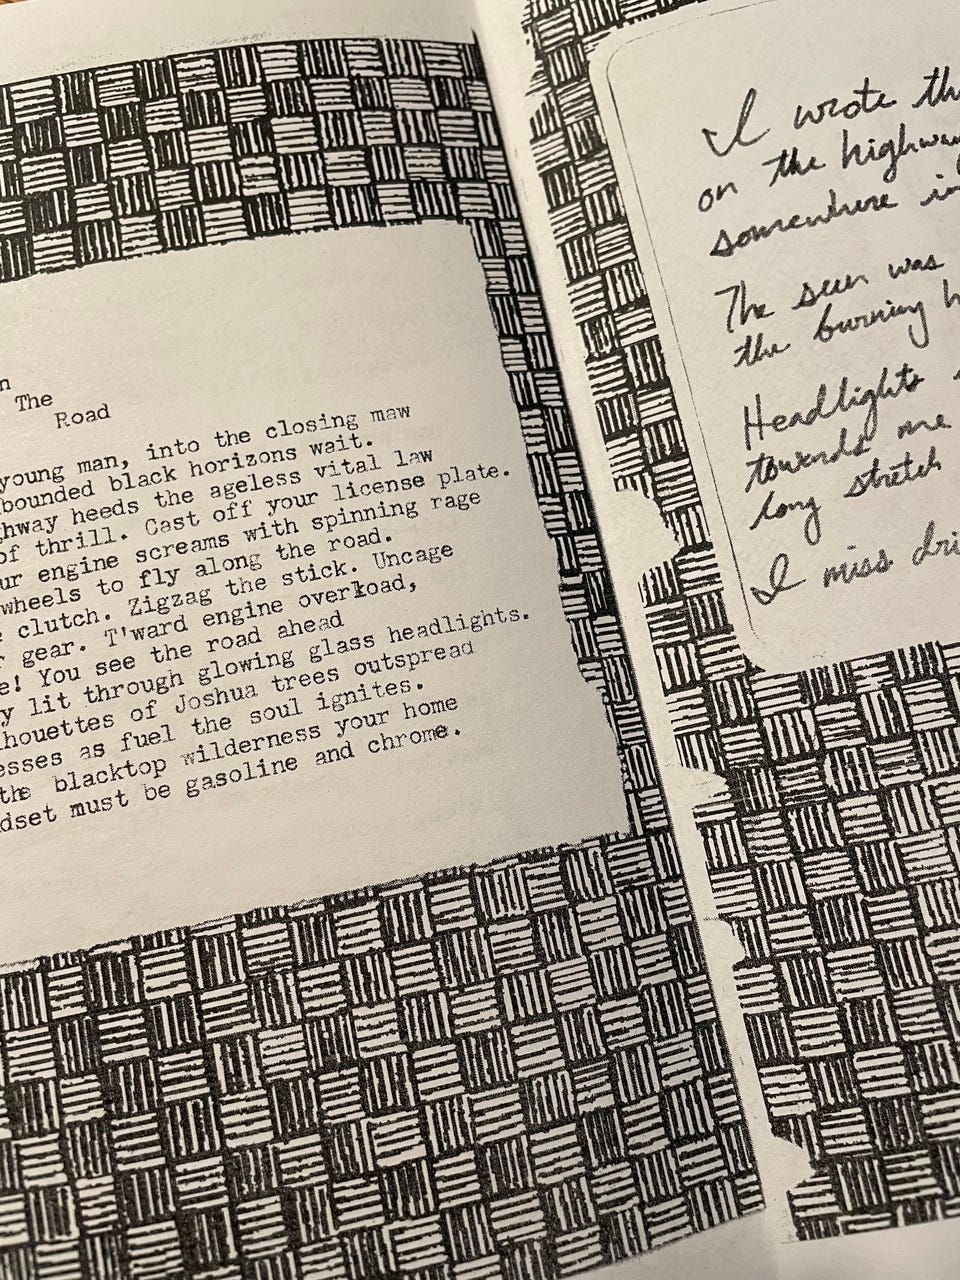 The
Road
young man, into the closing maw
bounded black horizons wait.
ghway heeds the ageless vital law
of thrill. Cast off your license plate.
ur engine screams with spinning rage
wheels to fly along the road.
clutch. Zigzag the stick. Uncage
gear. T'ward engine overload,
e! You see the road ahead
y lit through glowing glass headlights.
houettes of Joshua trees outspread
esses as fuel the soul ignites.
the blacktop wilderness your home
dset must be gasoline and chrome.
I wrote th
on the highway
somewhere in
The sun was
the burning h
Headlights
towards me
long stretch
I miss dri